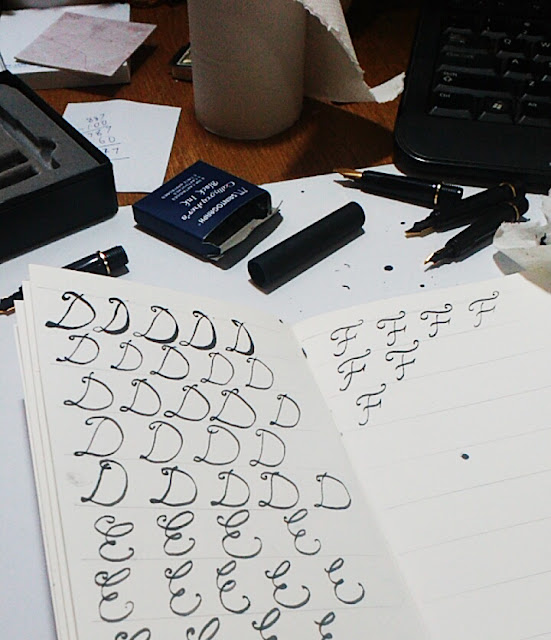 Calligrapher's
Black Ink
D D D D D
D D D D D
D D D D D
D D D D
D D D D D
E E E E
E E E E E
F F F F
F F
F